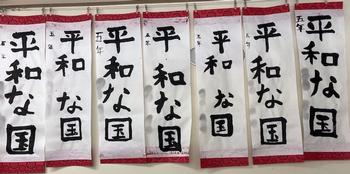 平和な国
平和な国
五年
平和な国
五年
平和な国
平和な国
平和な国
五年
平和な国